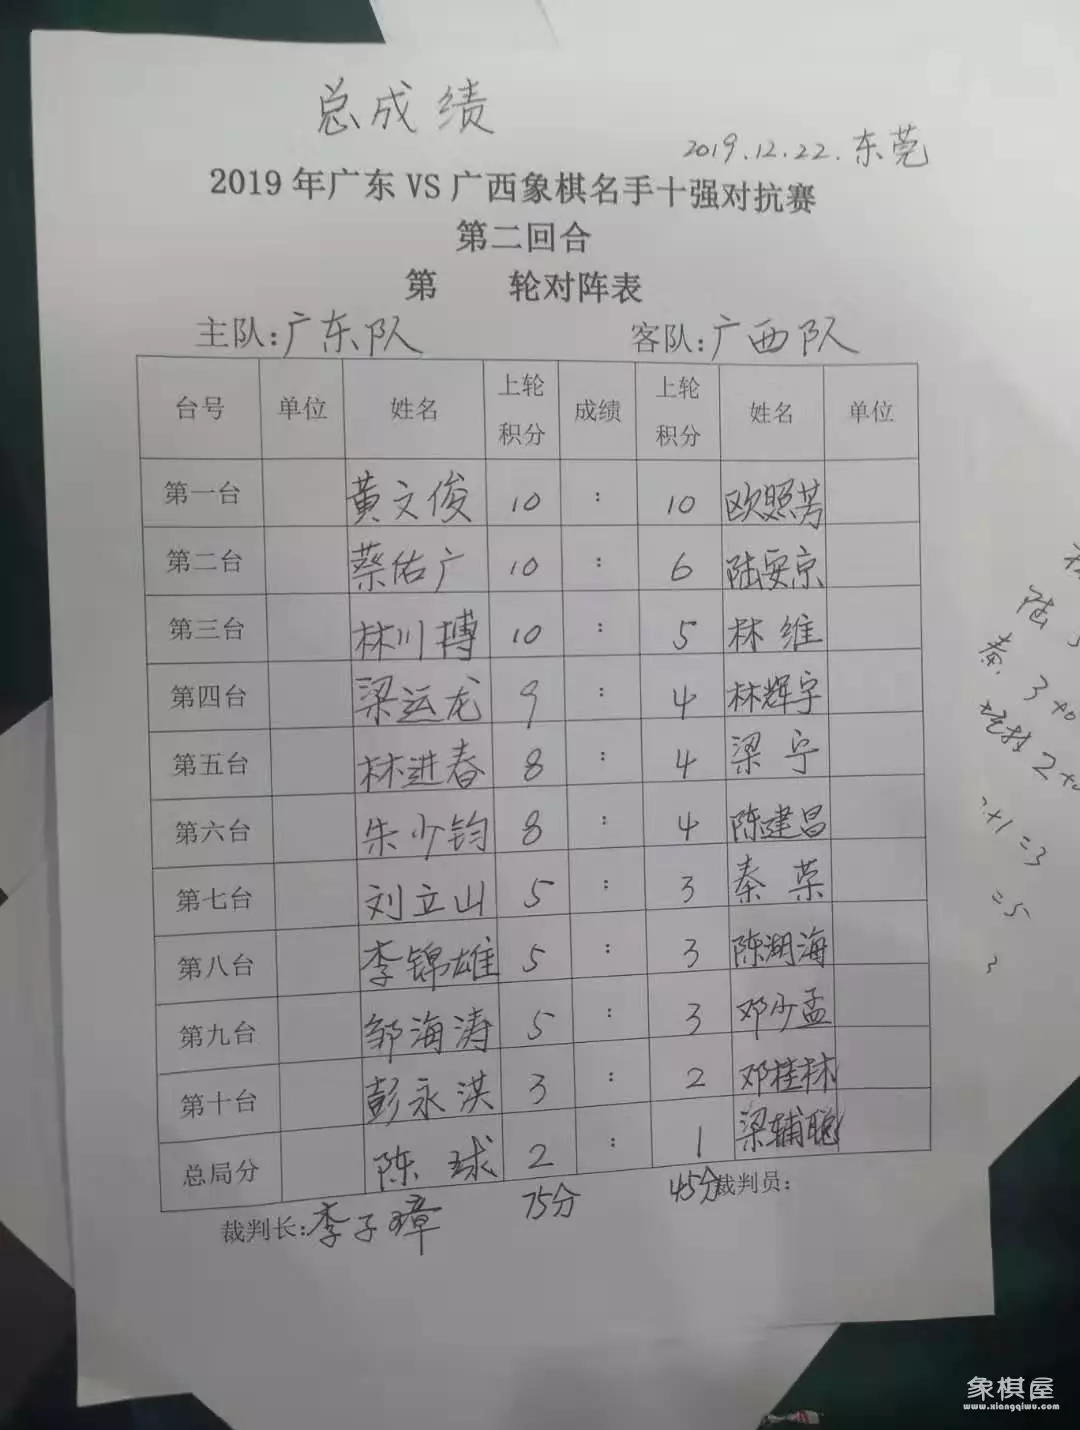 总成绩
2019.12.22.东莞
2019年广东VS广西象棋名手十强对抗赛
第二回合
第 轮对阵表
主队:广东队 客队:广西队
台号 单位 姓名 上轮积分 成绩 上轮积分 姓名 单位
第一台 黄文俊 10 : 10 欧照芳
第二台 蔡佑广 10 : 6 陆安京
第三台 林川搏 10 : 5 林维
第四台 梁运龙 9 : 4 林辉宇
第五台 林进春 8 : 4 梁宁
第六台 朱少钧 8 : 4 陈建昌
第七台 刘立山 5 : 3 秦荣
第八台 李锦雄 5 : 3 陈湖海
第九台 邹海涛 5 : 3 邓少孟
第十台 彭永淇 3 : 2 邓桂林
总局分 陈球 2 : 1 梁辅聪
75分 45分
裁判长:李子璋 裁判员:
陆
秦 3
2
+1=3
=5
3
象棋屋
www.xiangqiwu.com